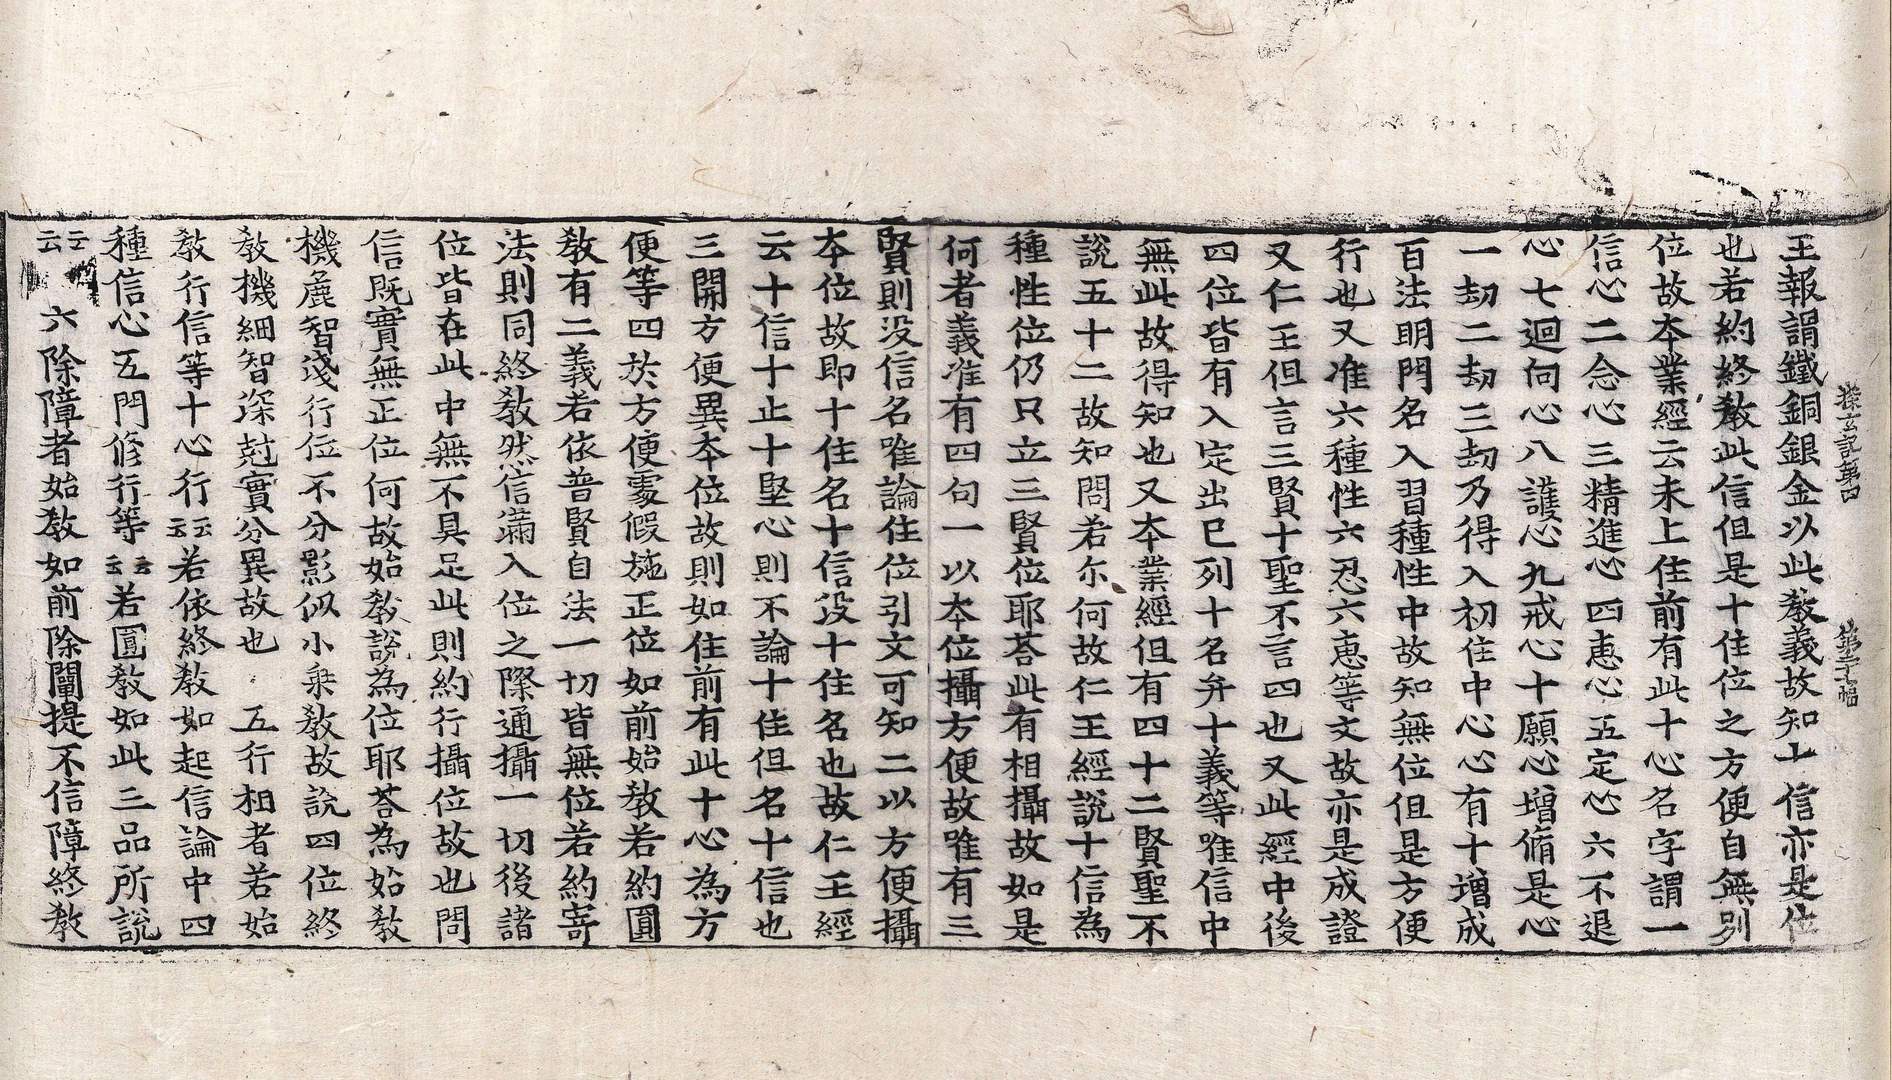 探玄記第四 第二十幅
王報謂鐵銅銀金以此教義故知十信亦是位
也若約終教此信但是十住位之方便自無别
位故本業經云未上住前有此十心名字謂一
信心二念心三精進心四恵心五定心六不退
心七迴向心八護心九戒心十願心增脩是心
一劫二劫三劫乃得入初住中心心有十增成
百法明門名入習種性中故知無位但是方便
行也又准六種性六忍六恵等文故亦是成證
又仁王但言三賢十聖不言四也又此經中後
四位皆有入定出已列十名弁十義等唯信中
無此故得知也又本業經但有四十二賢聖不
說五十二故知問若尓何故仁王經說十信為
種性位仍只立三賢位耶荅此有相攝故如是
何者義准有四句一以本位攝方便故唯有三
賢則没信名唯論住位引文可知二以方便攝
本位故即十住名十信没十住名也故仁王經
云十信十止十堅心則不論十住但名十信也
三開方便異本位故則如住前有此十心為方
便等四於方便處假施正位如前始教若約圓
教有二義若依普賢自法一切皆無位若約寄
法則同終教然信滿入位之際通攝一切後諸
位皆在此中無不具足此則約行攝位故也問
信既實無正位何故始教說為位耶荅為始教
機麁智淺行位不分影似小乗教故說四位終
教機細智深剋實分異故也 五行相者若始
教行信等十心行云云若依終教如起信論中四
種信心五門修行等云云若圓教如此三品所說
云云 六除障者始教如前除闡提不信障終教